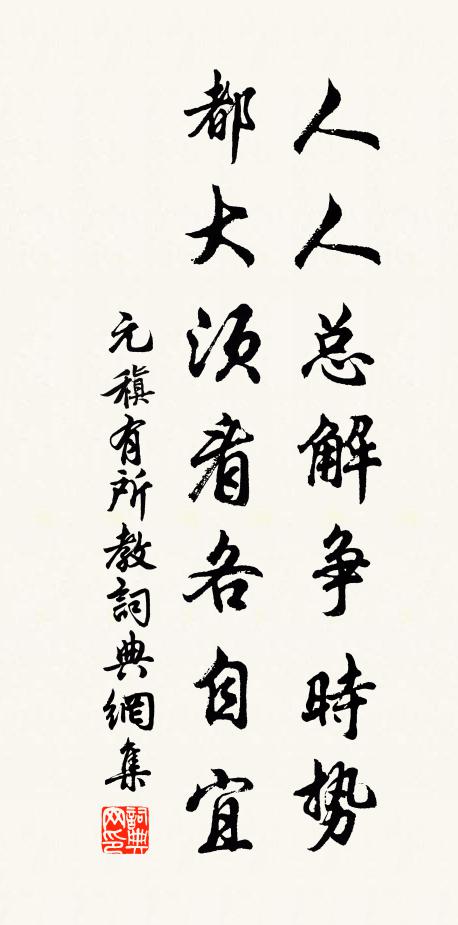 人人总解争時势
都大须看各自宜
元稹有所教詞典網集
詞典网印